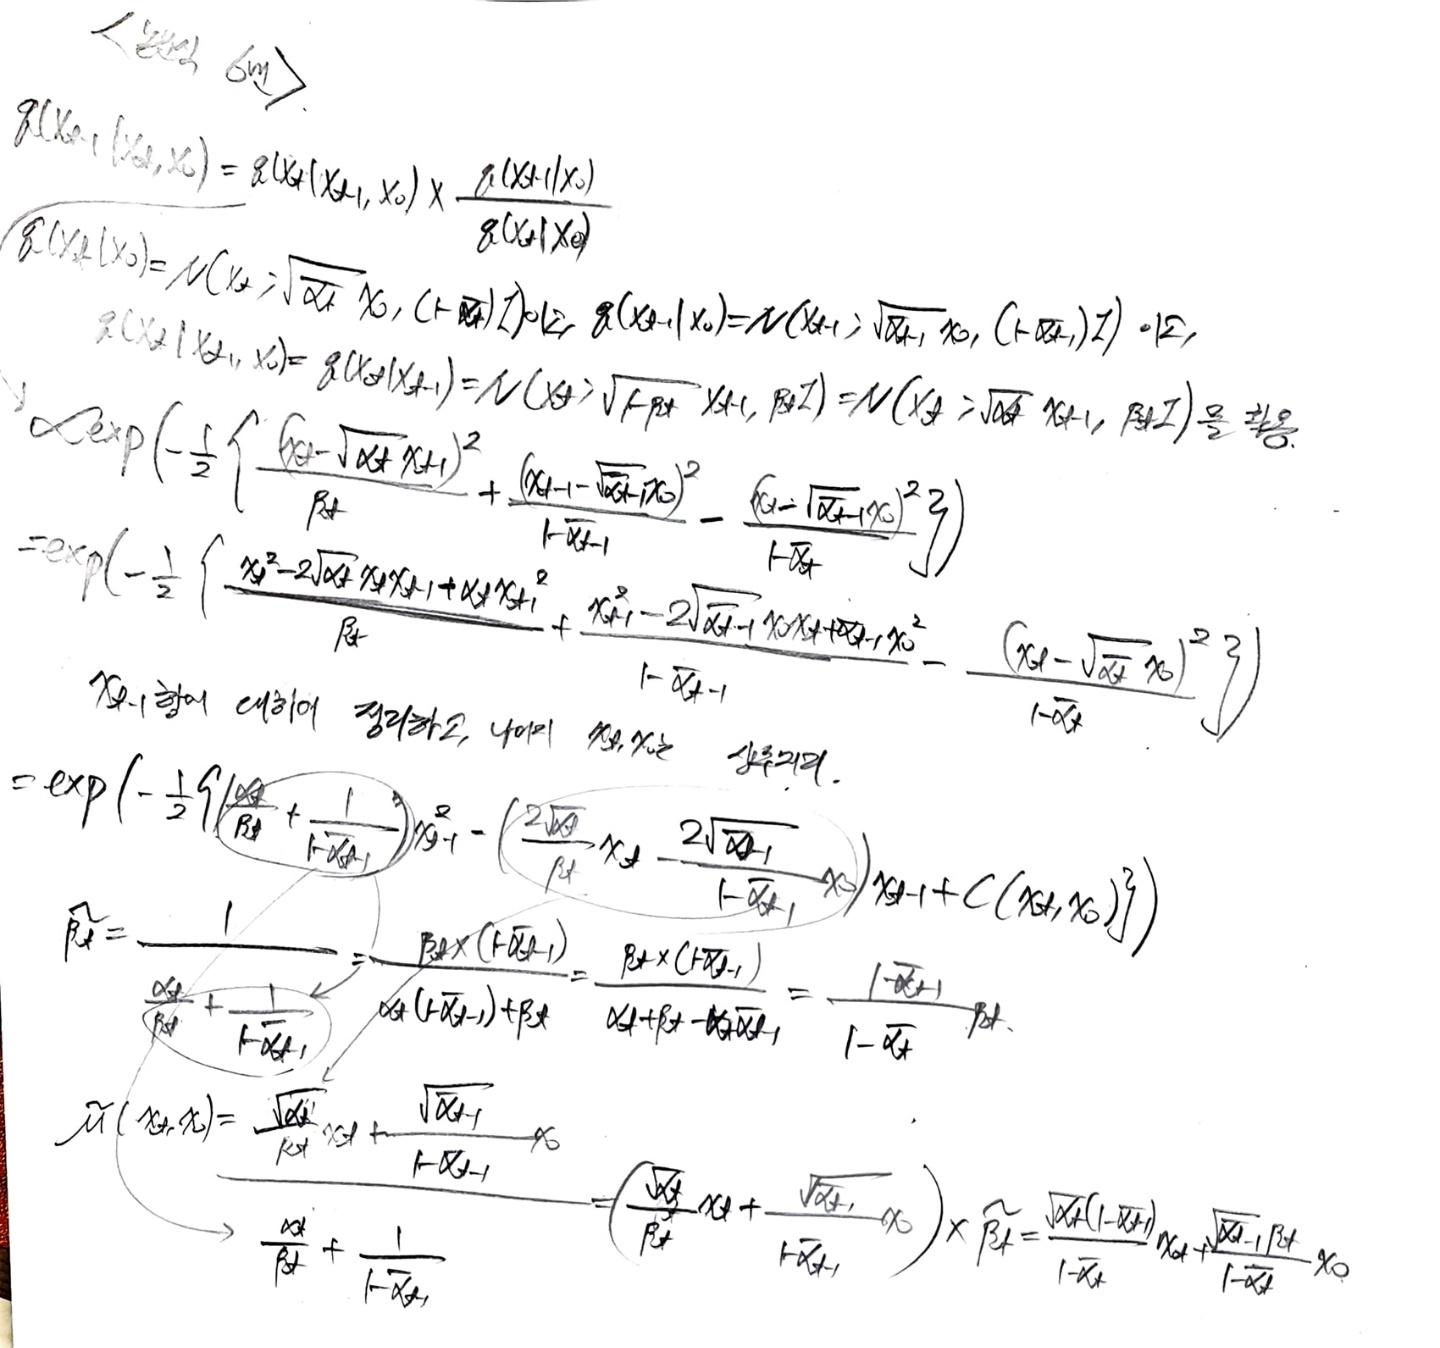 <논문식 6번>
q(x_{t-1}|x_t, x_0) = q(x_t|x_{t-1}, x_0) × \frac{q(x_{t-1}|x_0)}{q(x_t|x_0)}
q(x_t|x_0) = N(x_t; \sqrt{\bar{α}_t} x_0, (1-\bar{α}_t)I)이고, q(x_{t-1}|x_0) = N(x_{t-1}; \sqrt{\bar{α}_{t-1}} x_0, (1-\bar{α}_{t-1})I) 이고,
q(x_t|x_{t-1}, x_0) = q(x_t|x_{t-1}) = N(x_t; \sqrt{1-β_t} x_{t-1}, β_t I) = N(x_t; \sqrt{α_t} x_{t-1}, β_t I)를 활용.
∝ exp(-\frac{1}{2} { \frac{(x_t-\sqrt{α_t} x_{t-1})^2}{β_t} + \frac{(x_{t-1}-\sqrt{\bar{α}_{t-1}} x_0)^2}{1-\bar{α}_{t-1}} - \frac{(x_t-\sqrt{\bar{α}_{t-1}} x_0)^2}{1-\bar{α}_t} })
= exp(-\frac{1}{2} { \frac{x_t^2-2\sqrt{α_t} x_t x_{t-1}+α_t x_{t-1}^2}{β_t} + \frac{x_{t-1}^2-2\sqrt{\bar{α}_{t-1}} x_0 x_t+\bar{α}_{t-1} x_0^2}{1-\bar{α}_{t-1}} - \frac{(x_t-\sqrt{\bar{α}_t} x_0)^2}{1-\bar{α}_t} })
x_{t-1}항에 대하여 정리하고, 나머지 x_t, x_0는 상수처리.
= exp(-\frac{1}{2} { (\frac{α_t}{β_t} + \frac{1}{1-\bar{α}_{t-1}}) x_{t-1}^2 - (\frac{2\sqrt{α_t}}{β_t} x_t - \frac{2\sqrt{\bar{α}_{t-1}}}{1-\bar{α}_{t-1}} x_0) x_{t-1} + C(x_t, x_0) })
\tilde{β}_t = \frac{1}{\frac{α_t}{β_t} + \frac{1}{1-\bar{α}_{t-1}}} = \frac{β_t × (1-\bar{α}_{t-1})}{α_t(1-\bar{α}_{t-1})+β_t} = \frac{β_t × (1-\bar{α}_{t-1})}{α_t+β_t-α_t\bar{α}_{t-1}} = \frac{1-\bar{α}_{t-1}}{1-\bar{α}_t} β_t.
\tilde{μ}(x_t, x_0) = \frac{\frac{\sqrt{α_t}}{β_t} x_t + \frac{\sqrt{\bar{α}_{t-1}}}{1-\bar{α}_{t-1}} x_0}{\frac{α_t}{β_t} + \frac{1}{1-\bar{α}_{t-1}}} = (\frac{\sqrt{α_t}}{β_t} x_t + \frac{\sqrt{\bar{α}_{t-1}}}{1-\bar{α}_{t-1}} x_0) × \tilde{β}_t = \frac{\sqrt{α_t}(1-\bar{α}_{t-1})}{1-\bar{α}_t} x_t + \frac{\sqrt{\bar{α}_{t-1}} β_t}{1-\bar{α}_t} x_0